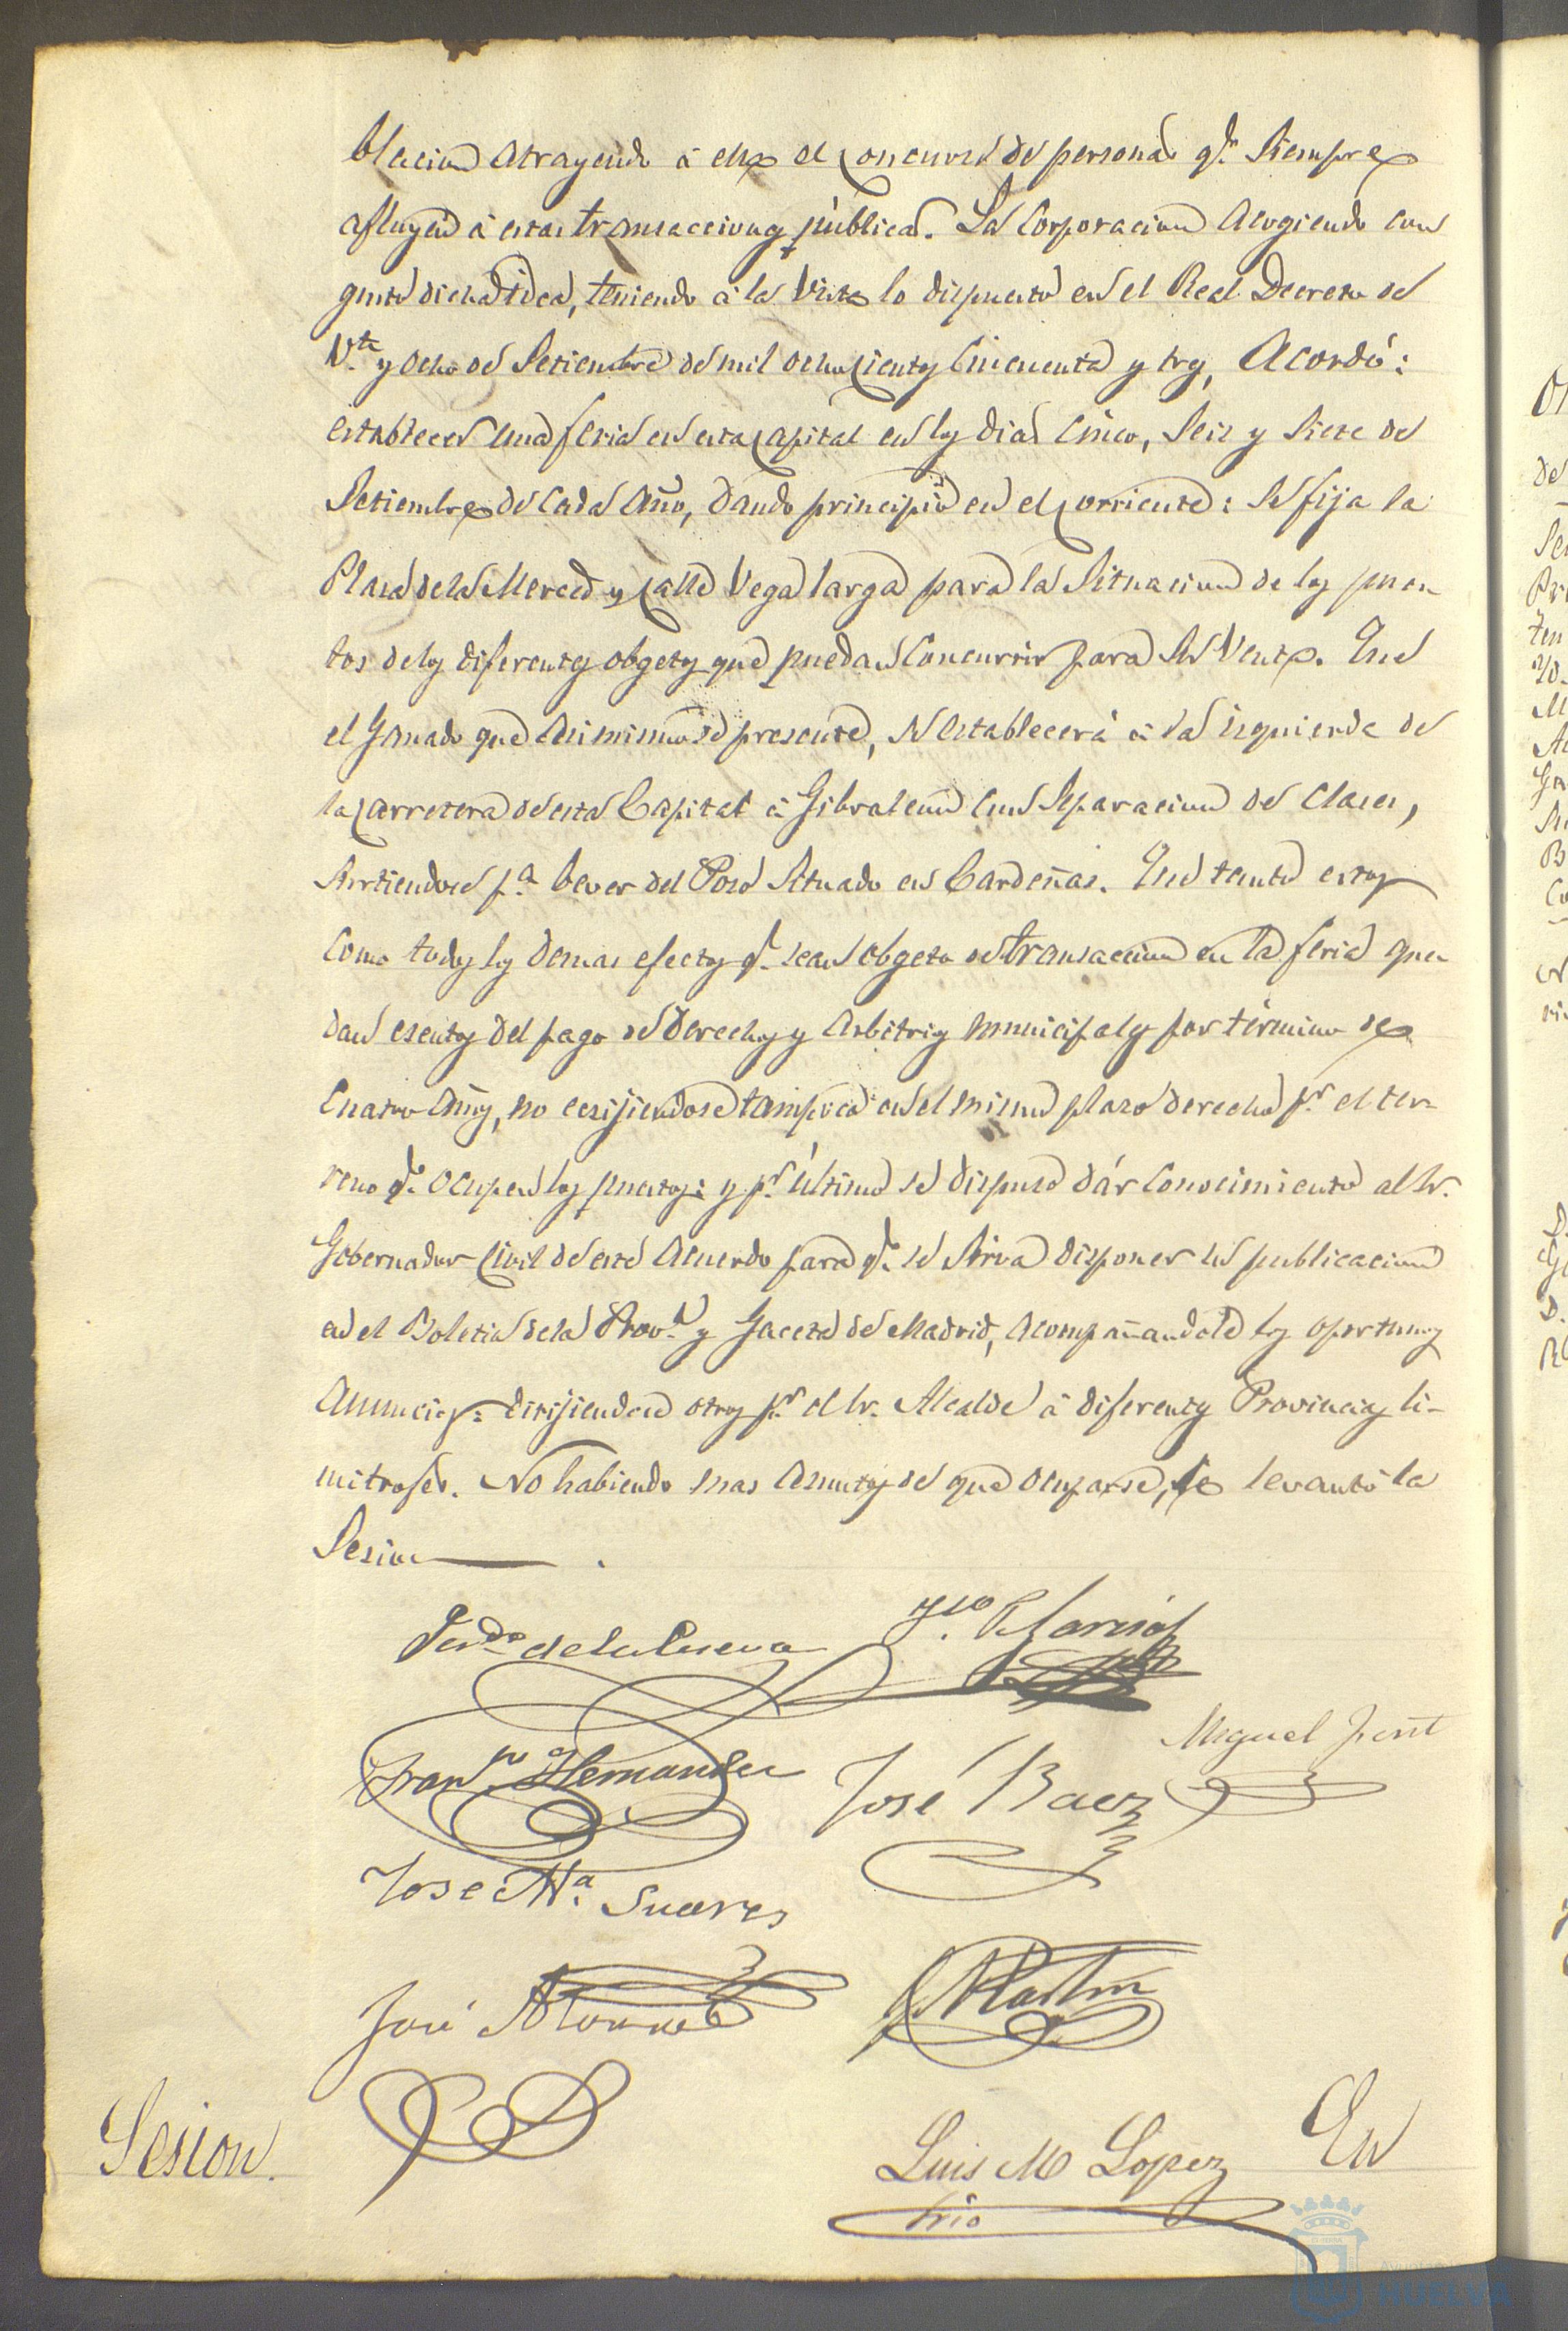 blacion atrayendo á ella el concurso de personas q.e siempre
afluyen á estas transacciones públicas. La Corporacion acogiendo con
gusto dicha idea, teniendo á la vista lo dispuesto en el Real Decreto de
V.te y ocho de Setiembre de mil ochocientos cincuenta y tres, Acordó:
establecer una feria en esta Capital en los dias cinco, seis y siete de
Setiembre de cada año, dando principio en el corriente: Se fija la
Plaza de la Merced y Calle Vega larga para la situacion de los pues-
tos de los diferentes obgetos que puedan concurrir para su venta. Que
el Ganado que asimismo se presente, se establecerá á la izquierda de
la Carretera de esta Capital á Gibraleon con separacion de clases,
surtiendose p.a bever del Pozo situado en Cardeñas. Que tanto estos
como todos los demas efectos q.e sean obgeto de transaccion en la feria que-
dan esentos del pago de derechos y arbitrios municipales por término de
cuatro años, no ecsijiendose tampoco en el mismo plazo derecho p.r el ter-
reno q.e ocupen los puestos: y p.r último se dispuso dár conocimiento al Sr.
Gobernador Civil de este acuerdo para q.e se sirva disponer su publicacion
en el Boletin de la Prov.a y Gaceta de Madrid, acompañandole los oportunos
anuncios: dirijiendose otros p.r el Sr. Alcalde á diferentes Provincias li-
mitrofes. No habiendo mas asuntos de que ocuparse, se levantó la
Sesion
Fern.do de la Cueva
Miguel
Fran.co Hernandez
José Baez
Jose M.a Suarez
José
Martin
Sesion.
Luis M Lopez
Srio
En
HUELVA